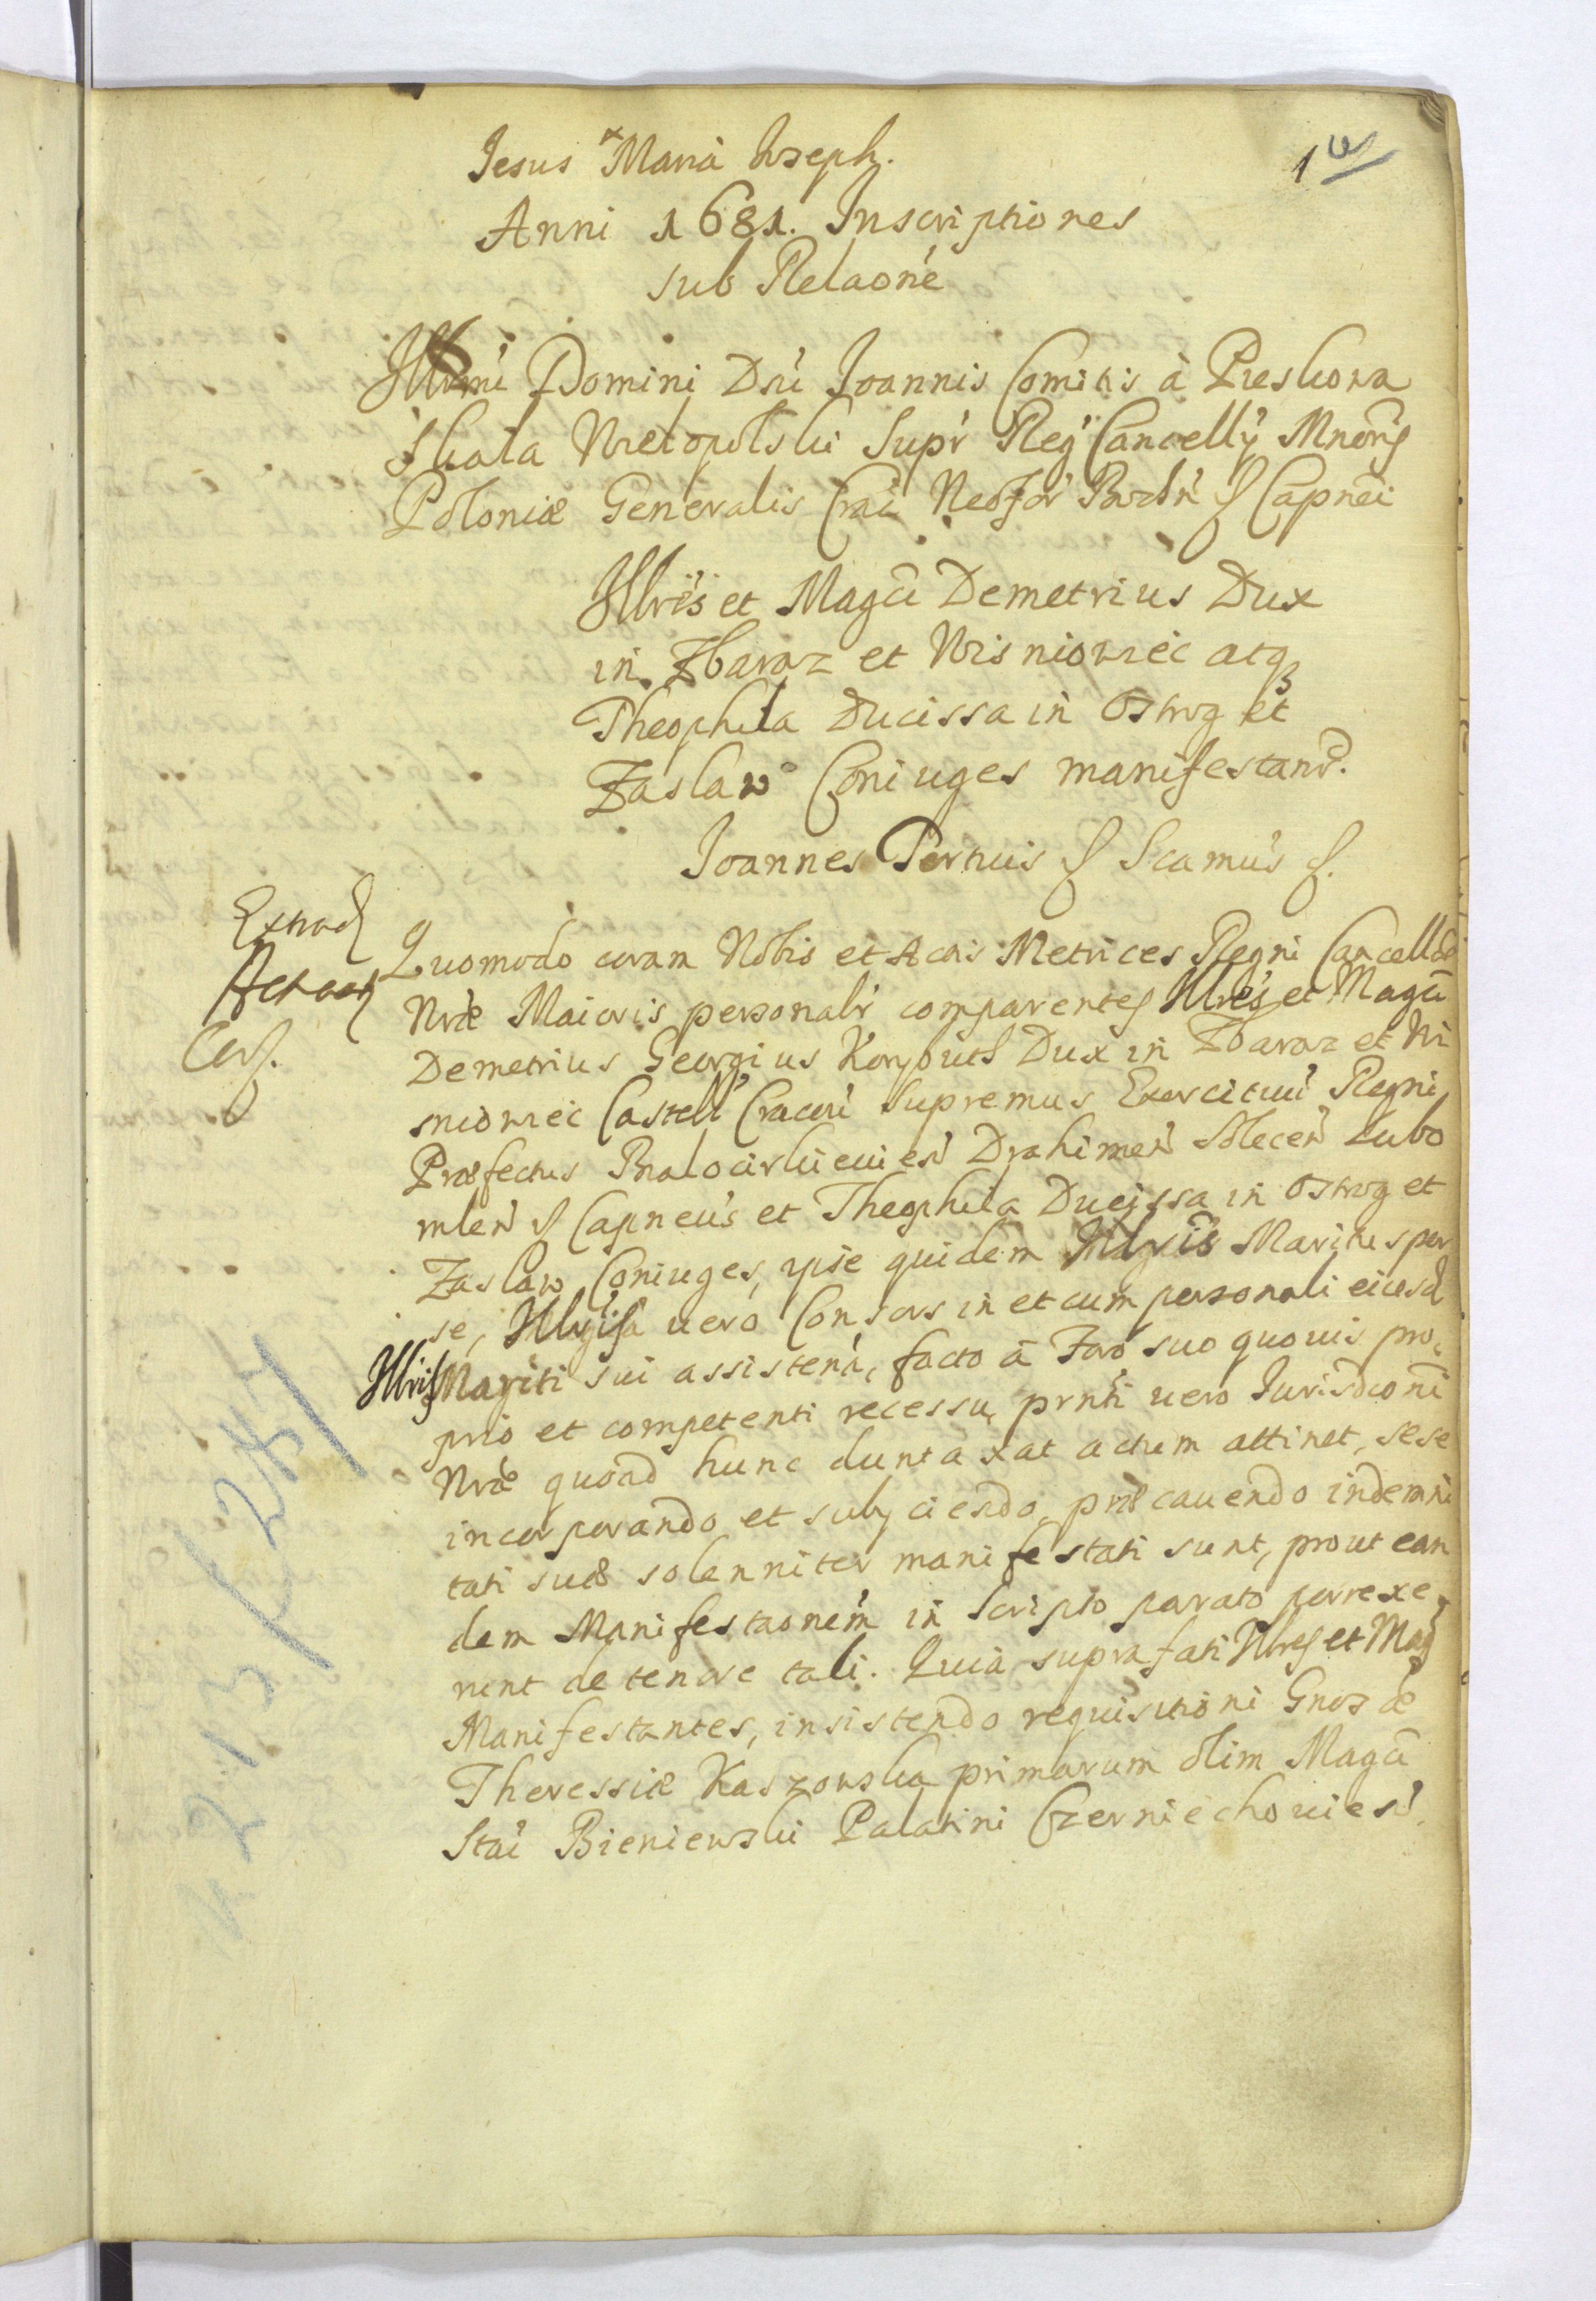 Jesus Maria Joseph.
1
Anni 1681. Inscriptiones
sub Relaone
Illrmi Domini Dni Joannis Comitis à Pieskowa
Skala Wielopolski Supr Reg Cancellÿ Mnoris
Poloniæ Generalis Crac Neofor Bochn Capnei
Illres et Magci Demetrius Dux
in Zbaraz et Wisniowiec atq3
Theophila Ducissa in Ostrog et
Zaslaw Coniuges manifestant.
Joannes Tertius Scamus
Extrad
Quomodo coram Nobis et Actis Metrices Regni Cancellæ
Nræ Maioris personalr comparentes Illres et Magci
Cor.
Demetrius Georgius Koryputh Dux in Zbaraz et Wi
sniowiec Castell Cracovi Supremus Exercituu Regni
Præfectus Bialocirkievien Drahimen Solecen Lubo
mlen Capneus et Theophila Ducissa in Ostrog et
Zaslaw Coniuges, ipse quidem Illris Maritus per
se, Illris vero Consors in et cum personali eiusd
Illris Mariti sui assistena, facto à Foro suo quovis pro
prio et competenti recessu, prnti vero Jurisdconi
Nræ quoad hunc duntaxat actum attinet, sese
incorporando et subyciendo, præcavendo indemni
tati suæ solenniter manifestati sunt, prout ean
dem Manifestaonem in scripto parato porrexe
runt de tenore tali. Quia suprafati Illres et Mag
Manifestantes, insistendo requisitioni Gnosæ
Theressiæ Kaszowska primarum olim Magci
Stai Bieniewski Palatini Czerniechovien